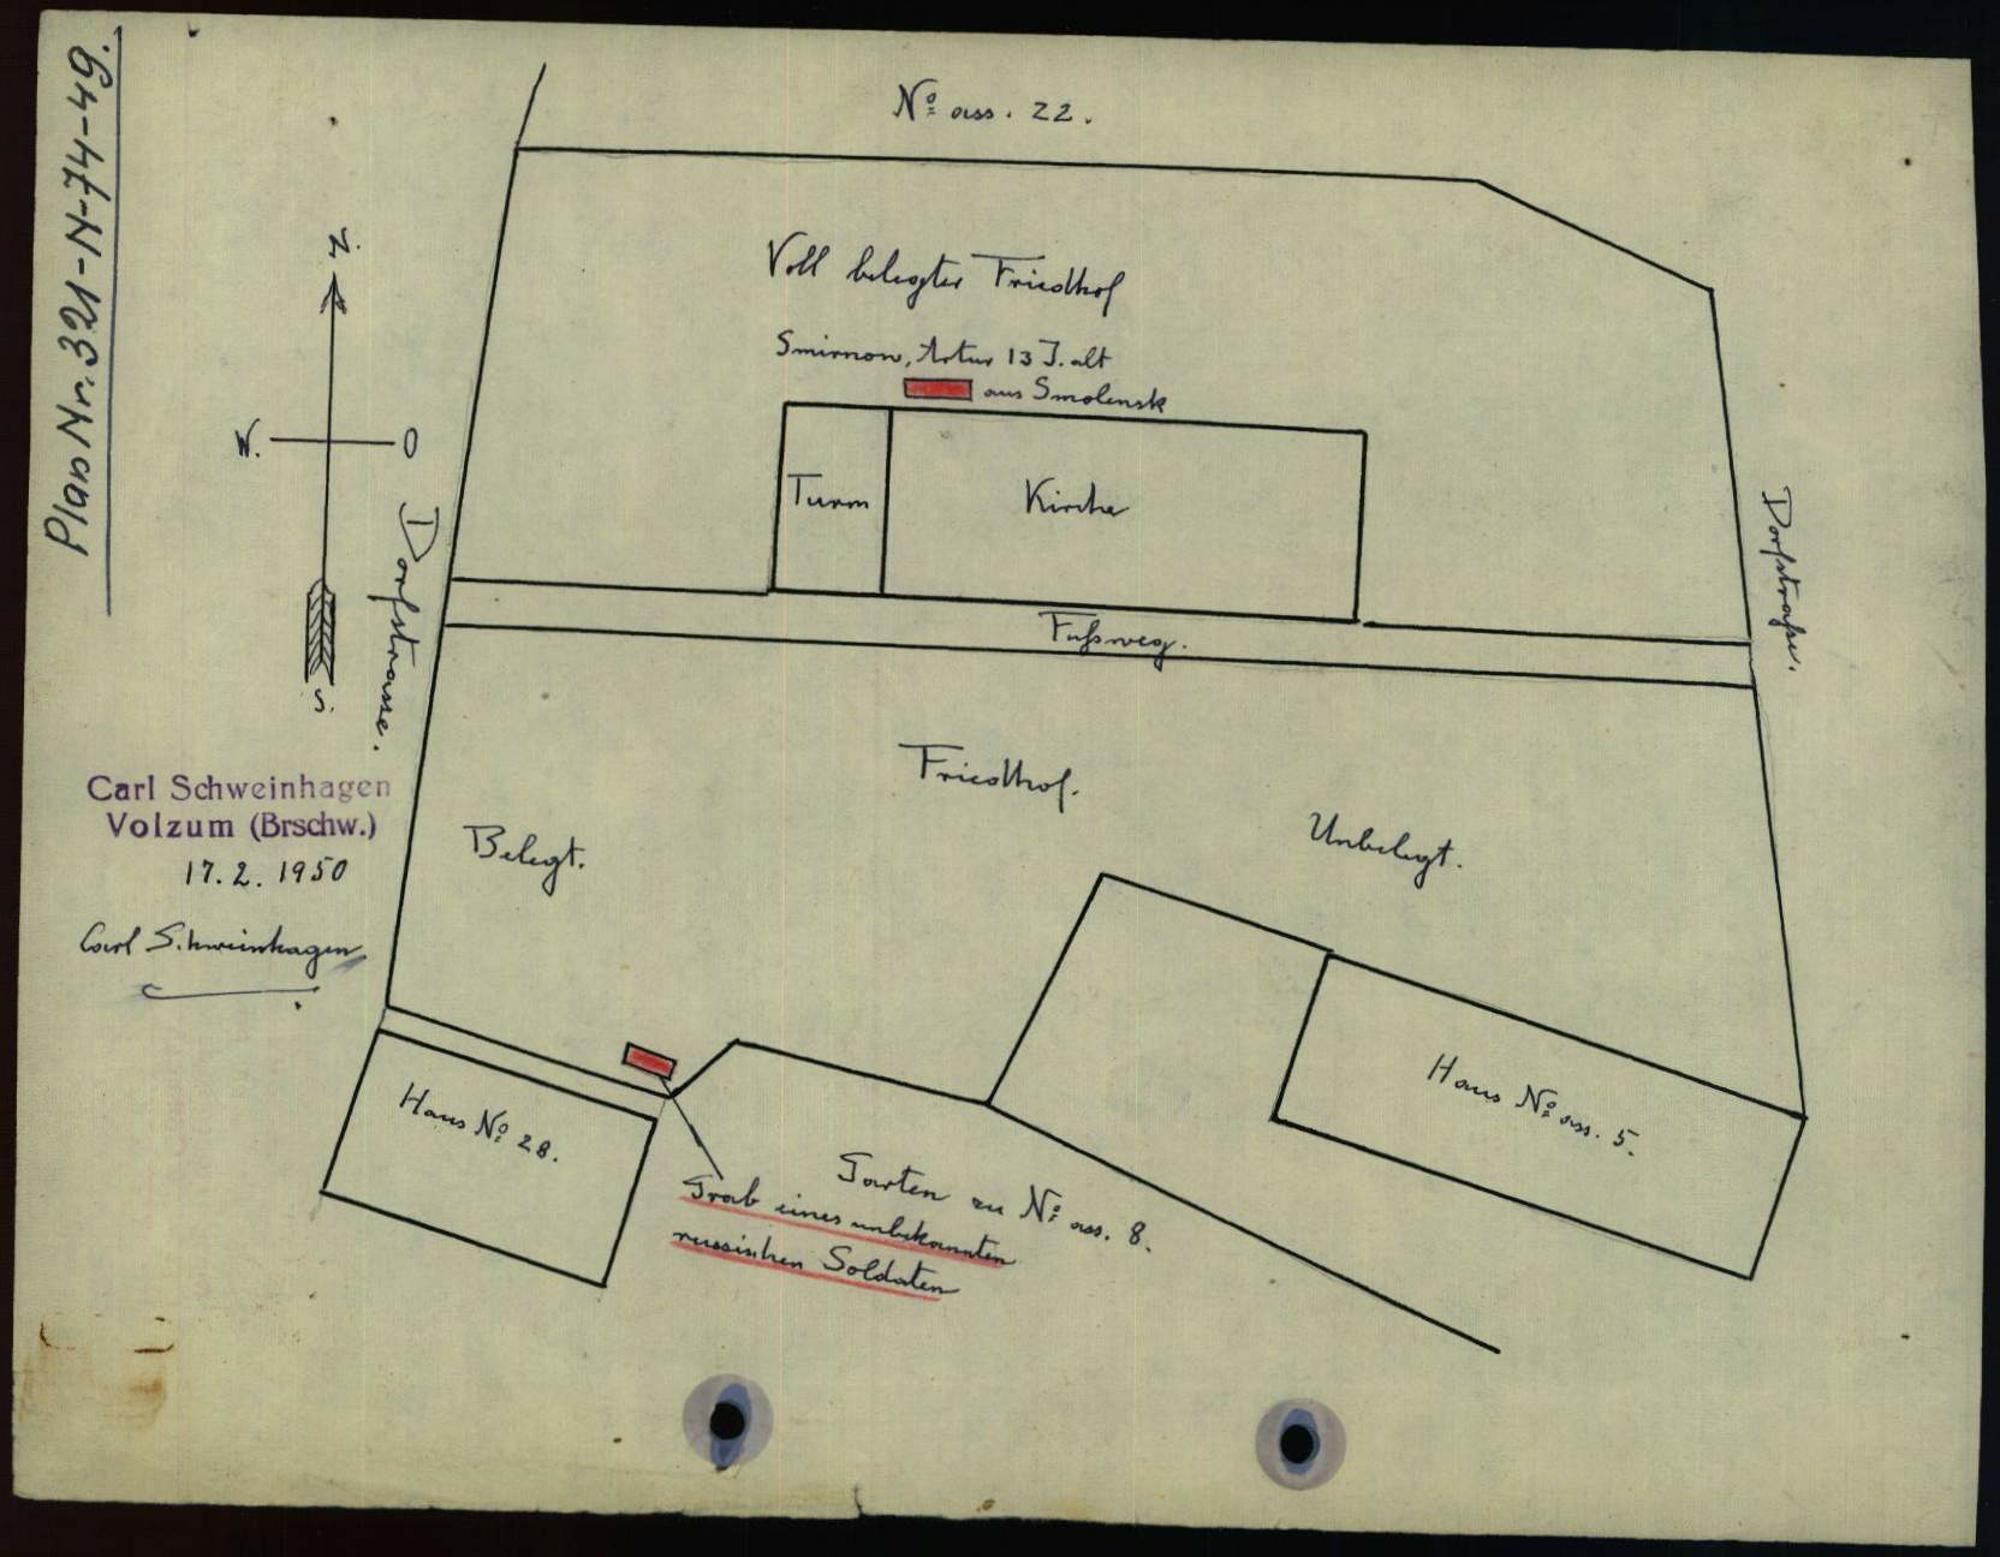 Plan Nr. 321-N-74-49.
No ass. 22.
N.
W.
O
S.
Voll belegter Friedhof
Smirnow, Artur 13 J. alt
aus Smolensk
Turm
Kirche
Dorfstrasse.
Dorfstraße.
Fußweg.
Friedhof.
Belegt.
Unbelegt.
Carl Schweinhagen
Volzum (Brschw.)
17. 2. 1950
Carl Schweinhagen
Haus No 28.
Haus No ass. 5.
Garten zu No ass. 8.
Grab eines unbekannten
russischen Soldaten